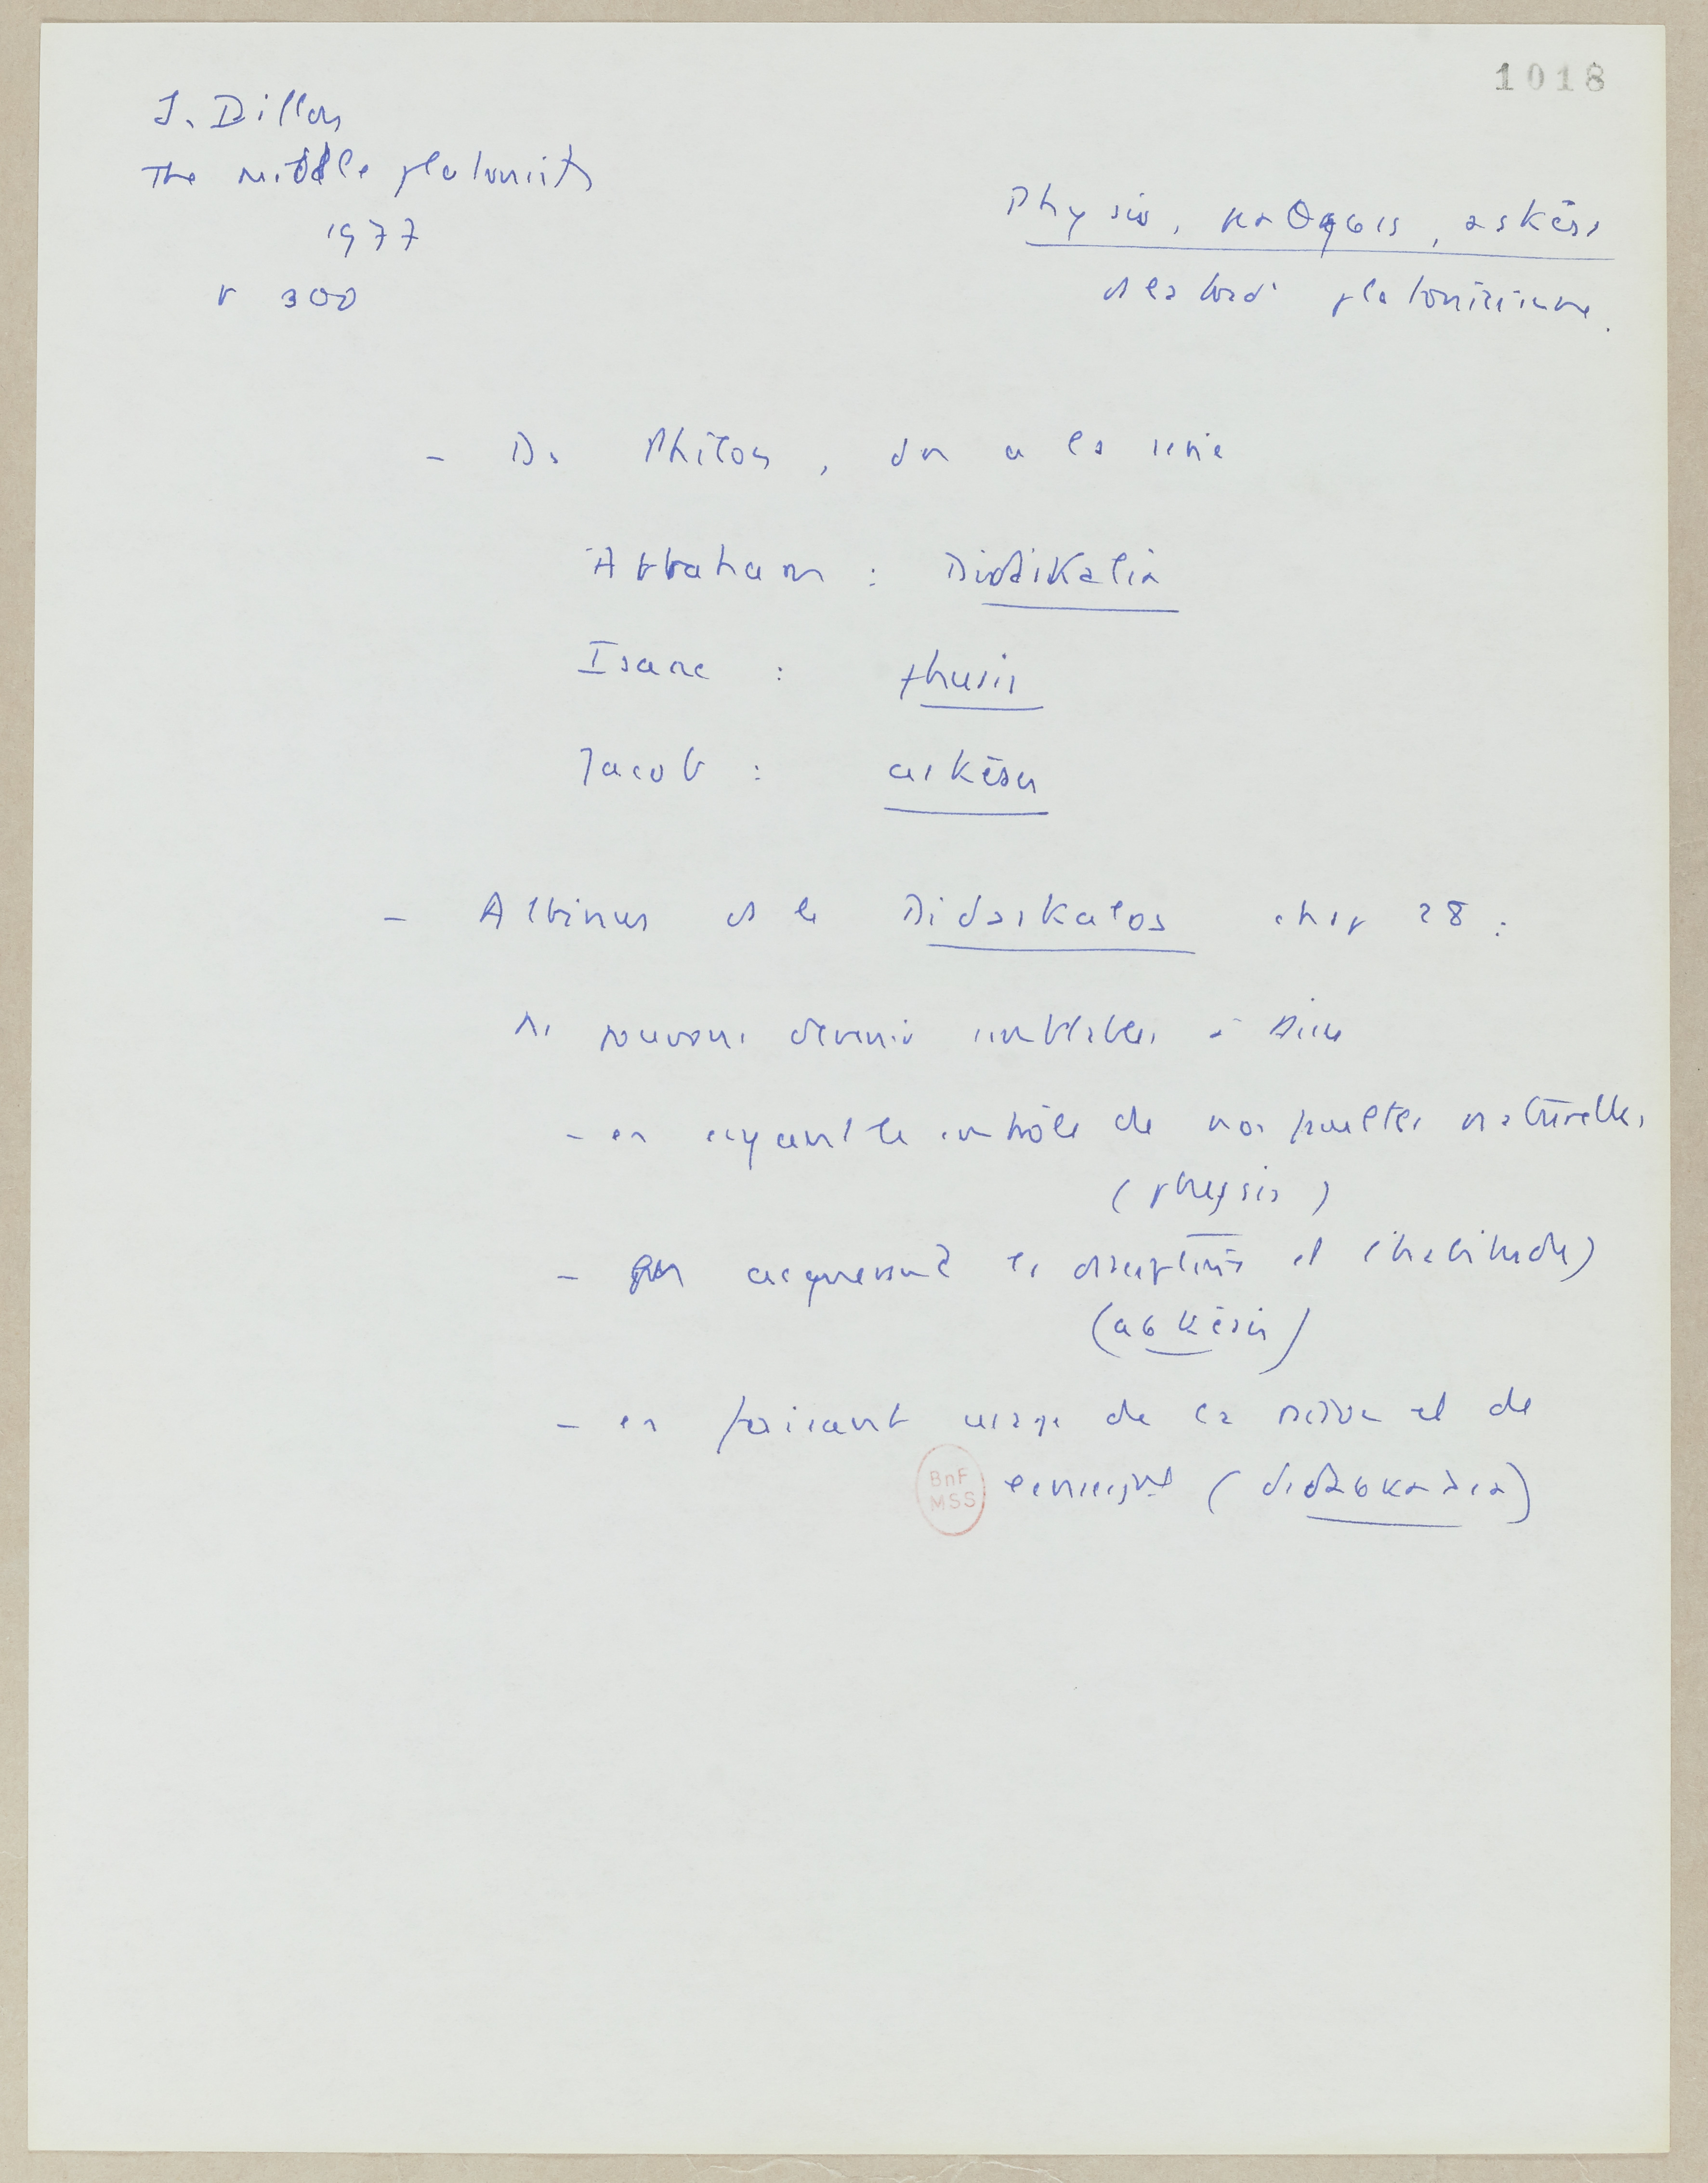 1018
J. Dillon
The Middle platonists
1977
p 300
Physis, μαθησις, askēsis
ds la trad° platonicienne.
- Ds Philon, on a la série
Abraham : Didaskalia
Isaac : phusis
Jacob : askēsis
- Albinus ds le Didaskalos chap 28 :
ns pouvons devenir semblables à Dieu
- en ayant le contrôle de nos facultés naturelles
(physis)
- en acquérant les disciplines et (habitude)
(askēsis)
- en faisant usage de la raison et de
l'enseignt (διδασκαλια)
BnF
MSS